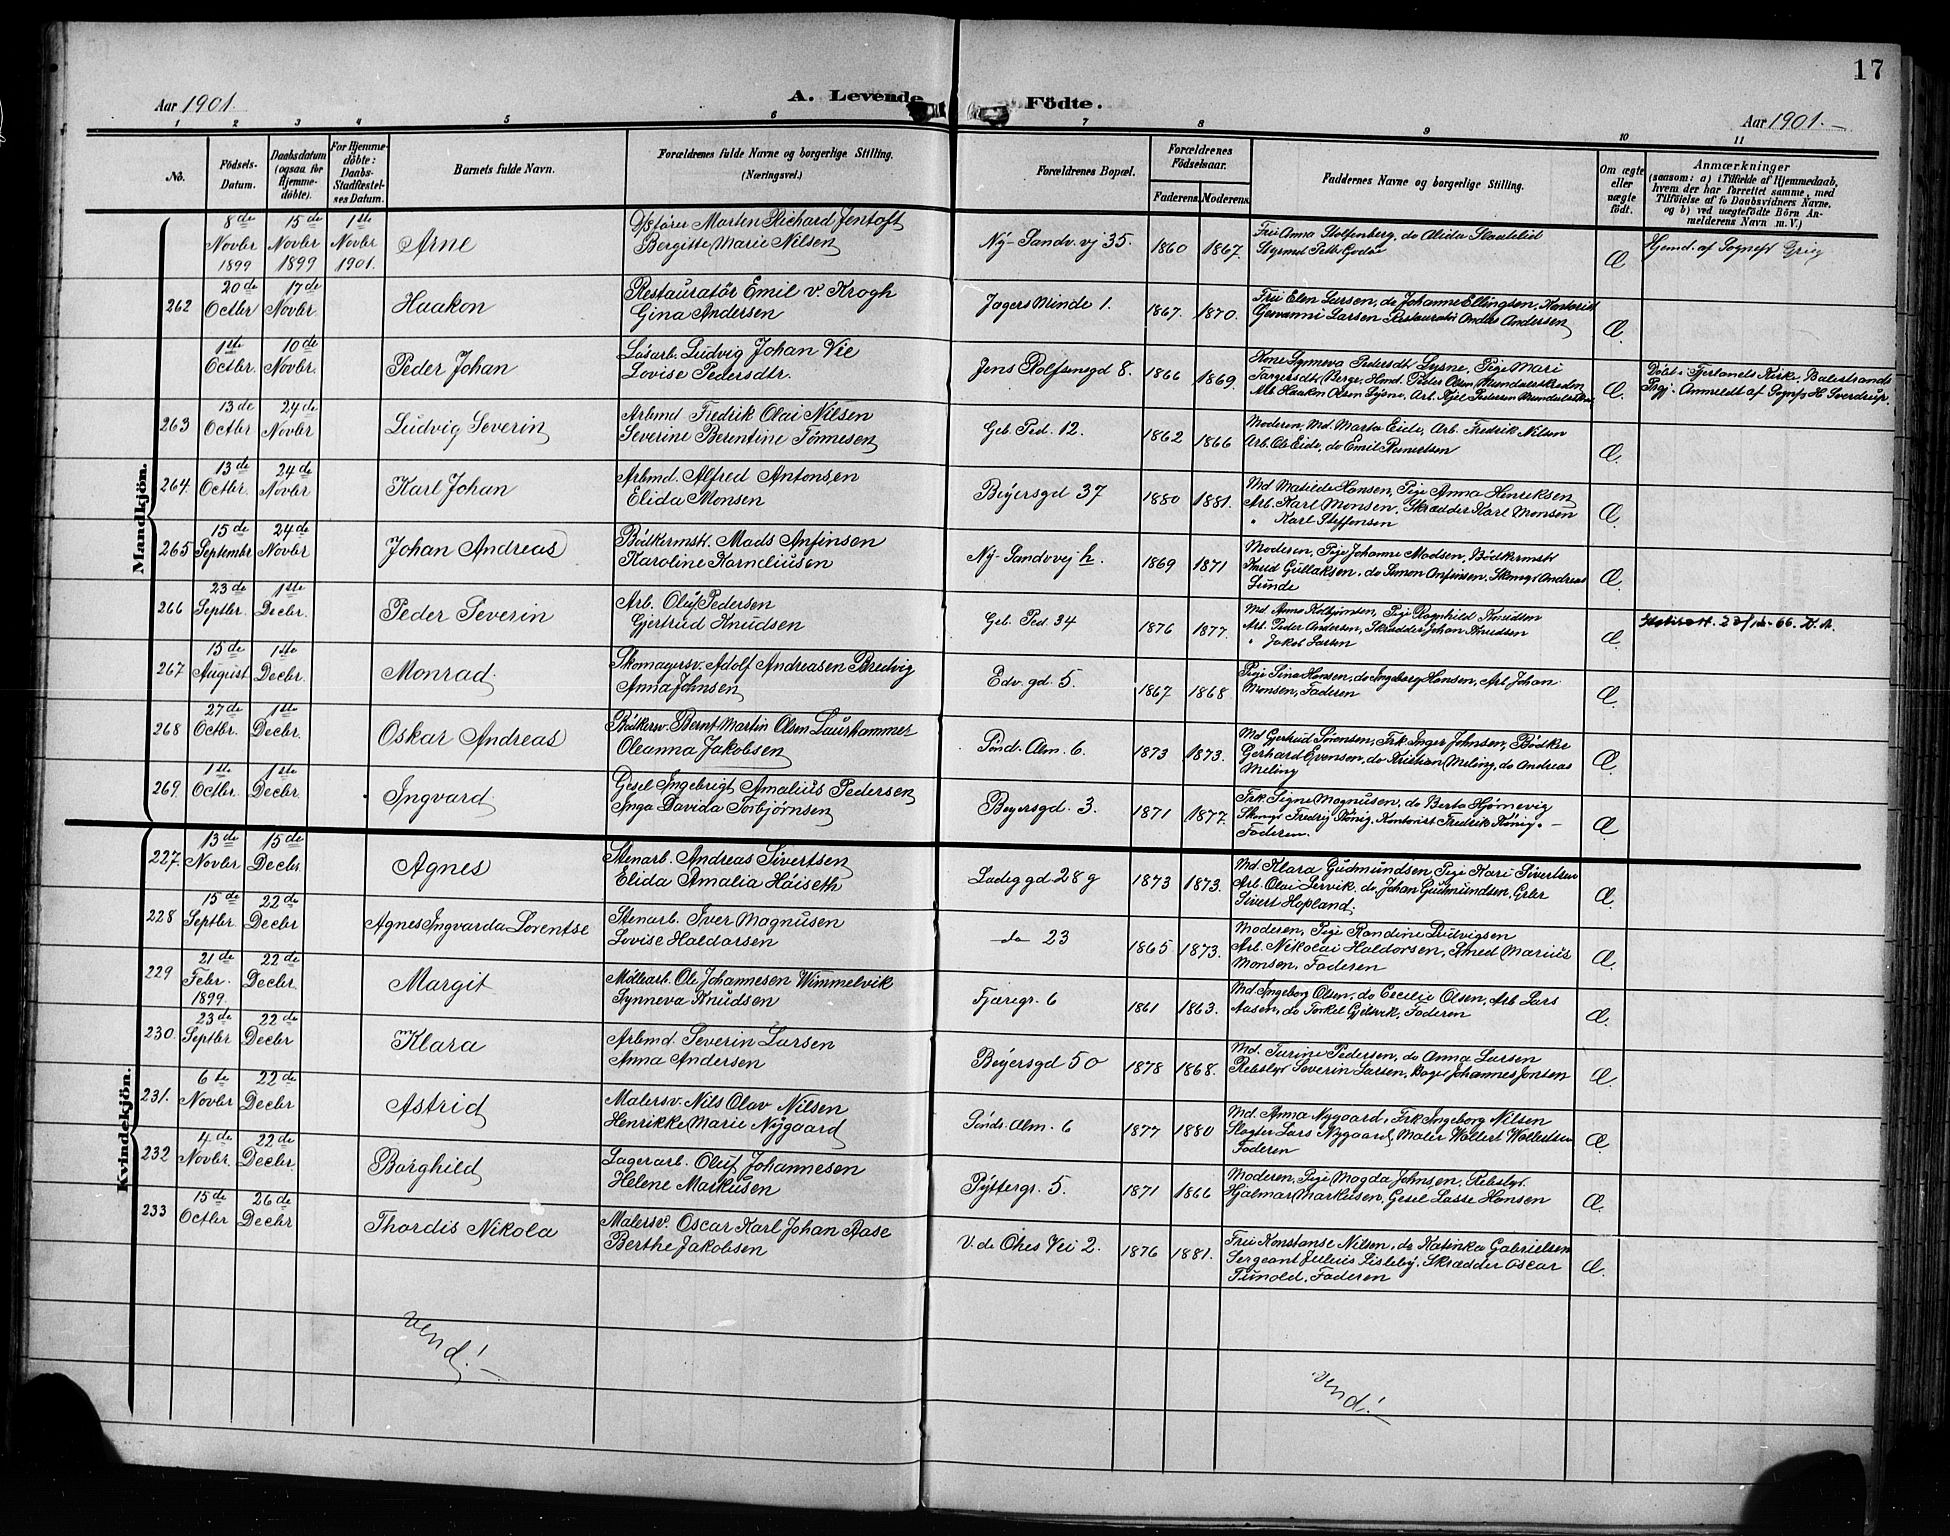 17
Aar 1901.
A. Levende Födte.
Aar 1901.-
1 2 3 4 5 6 7 8 9 10 11
No.
Födsels-Datum.
Daabsdatum (ogsaa for Hjemmedöbte).
For Hjemmedöbte: Daabs-Stadfæstelses Datum.
Barnets fulde Navn.
Forældrenes fulde Navne og borgerlige Stilling.
(Næringsvei.)
Forældrenes Bopæl.
Forældrenes Födselsaar.
Faderens. Moderens.
Faddernes Navne og borgerlige Stilling.
Om ægte eller uægte födt.
Anmærkninger
(saasom: a) i Tilfælde af Hjemmedaab, hvem der har forrettet samme, med Tilföielse af to Daabsvidners Navne, og b) ved uægtefödte Börn Anmelderens Navn m. V.)
Mandkjön.
8de Novbr 1899 15de Novbr 1899 1ste Novbr 1901. Arne
Marten Richard Jentoft
Bergitte Marie Nilsen
Ny-Sandv.vj 35. 1860 1867.
Frü Anna Stoltenberg, do Alida
Æ Hjemd. af Sognepr Grieg
262 20de Octbr 17de Novbr. Haakon
Restauratør Emil v. Krogh
Gina Andersen
Jægers Minde 1. 1867. 1870.
Frü Elen Larsen, do Johanne Ellingsen, Kontorist
Larsen Restauratør Andersen
Æ.
1ste Octbr. 10de Novbr. Peder Johan
Løsarb. Ludvig Johan Vie
Lovise Pedersdtr.
Jens Rolfsensgd 8. 1866 1869.
Kone Synneva Pedersdt Lysne, Pige Mari
Peder Olsen
Arb Haakon Olsen Lysne, Arb. Kjel Pedersen
Æ.
Døbt i Fjærlands Kirke, Balestrands
Prgj. Anmeldt af Sognepr H Sverdrup.
263 13de Octbr 24de Novbr Ludvig Severin
Arbmd Fredrik Olai Nilsen
Severine Berentine Tønnesen
Geb Ped. 12. 1862 1866
Moderen, Md. Marta Eide, Arb. Fredrik Nilsen
Arb. Ole Eide, do Emil
Æ.
264. 13de Octbr. 24de Novbr Karl Johan
Arbmd. Alfred Antonsen
Elida Monsen
Beyersgd 37 1880 1881.
Md Matilde Hansen, Pige Anna Henriksen
Arb. Karl Monsen, Skrædder Karl Monsen
" Karl Steffensen
Æ.
265 15de Septembr 24de Novbr. Johan Andreas
Bødkermstr. Mads Anfinsen
Karoline Korneliusen
Ny-Sandvvej h. 1869 1871
Moderen, Pige Johanne Madsen, Bødkermstr
Knud Gullaksen, do Simon Anfinsen, Skomgr Andreas
Lunde
Æ.
266 23de Septbr. 1ste Decbr. Peder Severin
Arb. Oluf Pedersen
Gjertrud Knudsen
Geb Ped. 34 1876 1877.
Md Anna Kolbjørnsen, Pige Ragnhild Knudsen
Arb. Peder Andersen, Skrædder Johan Knudsen
" Jakob Larsen
Æ.
267 15de August 1ste Decbr. Monrad
Skomagersv. Adolf Andreasen Bredvig
Anna Johnsen
Edv. gd. 5. 1867 1868
Pige Sina Hansen, do Ingeborg Hansen, Arb Johan
Monsen, Faderen
Æ.
268 27de Octbr. 1ste Decbr. Oskar Andreas
Bødkersv Bernt Martin Olsen Laurhammer
Oleanna Jakobsen
Sønd. Alm. 6. 1873 1873.
Md Gjertrud Sørensen, Frk. Inger Johnsen, Bødker
Gerhard Evensen, do Kristian Meling, do Andreas
Meling
Æ.
269. 1ste Octbr. 1ste Decbr. Ingvard
Gesel Ingebrigt Amalius Pedersen
Inga Davida Torbjørnsen
Beyersgd. 3. 1871 1877.
Frk. Signe Magnusen, do Berta Hjørnevig
Skomgr Fredrig König, Kontorist Fredrik König. -
Faderen.
Æ
Kvindekjön.
227. 13de Novbr 15de Decbr Agnes
Stenarb. Andreas Sivertsen
Elida Amalia Høiseth
Ladeggd 28g 1873 1873.
Md. Klara Gudmundsen, Pige Kari Sivertsen
Arb. Olai Lervik, do Johan Gudmundsen, Grbr
Sivert Hopland
Æ.
228 15de Septbr. 22de Decbr. Agnes Ingvarda Lorentse
Stenarb. Iver Magnusen
Lovise Haldorsen
do 23 1865 1873.
Moderen, Pige Randine Ludvigsen
Arb. Nikolai Haldorsen, Smed Marius
Monsen, Faderen
Æ.
229 21de Febr. 1899. 22de Decbr. Margit
Møllearb. Ole Johannesen Wimmelvik
Synneva Knudsen
Fjæregr. 6 1861 1863.
Md Ingeborg Olsen, do Cecilie Olsen, Arb Lars
Aasen, do Torkel Gjelsvik, Faderen
Æ.
230. 23de Septbr 22de Decbr Klara
Arbmd. Severin Larsen
Anna Andersen
Beyersgd 50 1878 1868.
Md. Turine Pedersen, do Anna Larsen
Rebslgr Severin Larsen, Bager Johannes Jonsen
Æ.
231. 6te Novbr 22de Decbr Astrid
Malersv. Nils Olav Nilsen
Henrikke Marie Nygaard
Sønd. Alm. 6 1877 1880
Md. Anna Nygaard, Frk Ingeborg Nilsen
Slagter Lars Nygaard, Maler Wollert Wollertsen
Faderen
Æ.
232 4de Novbr. 22de Decbr Borghild
Lagerarb. Oluf Johannesen
Helene Markusen
Pyttergr. 5. 1871 1866
Moderen, Pige Magda Johnsen, Rebslgr.
Hjalmar Markusen, Gesel Lasse Hansen
Æ.
233 15de Octbr 26de Decbr Thordis Nikola
Malersv. Oscar Karl Johan Aase
Berthe Jakobsen
V. de Ohes Vei 2. 1876 1881.
Frü Konstanse Nilsen, do Katinka Gabrielsen
Sergeant Julius Lisleby, Skrædder Oscar
Tunold, Faderen
Æ.
Vend!
Vend!